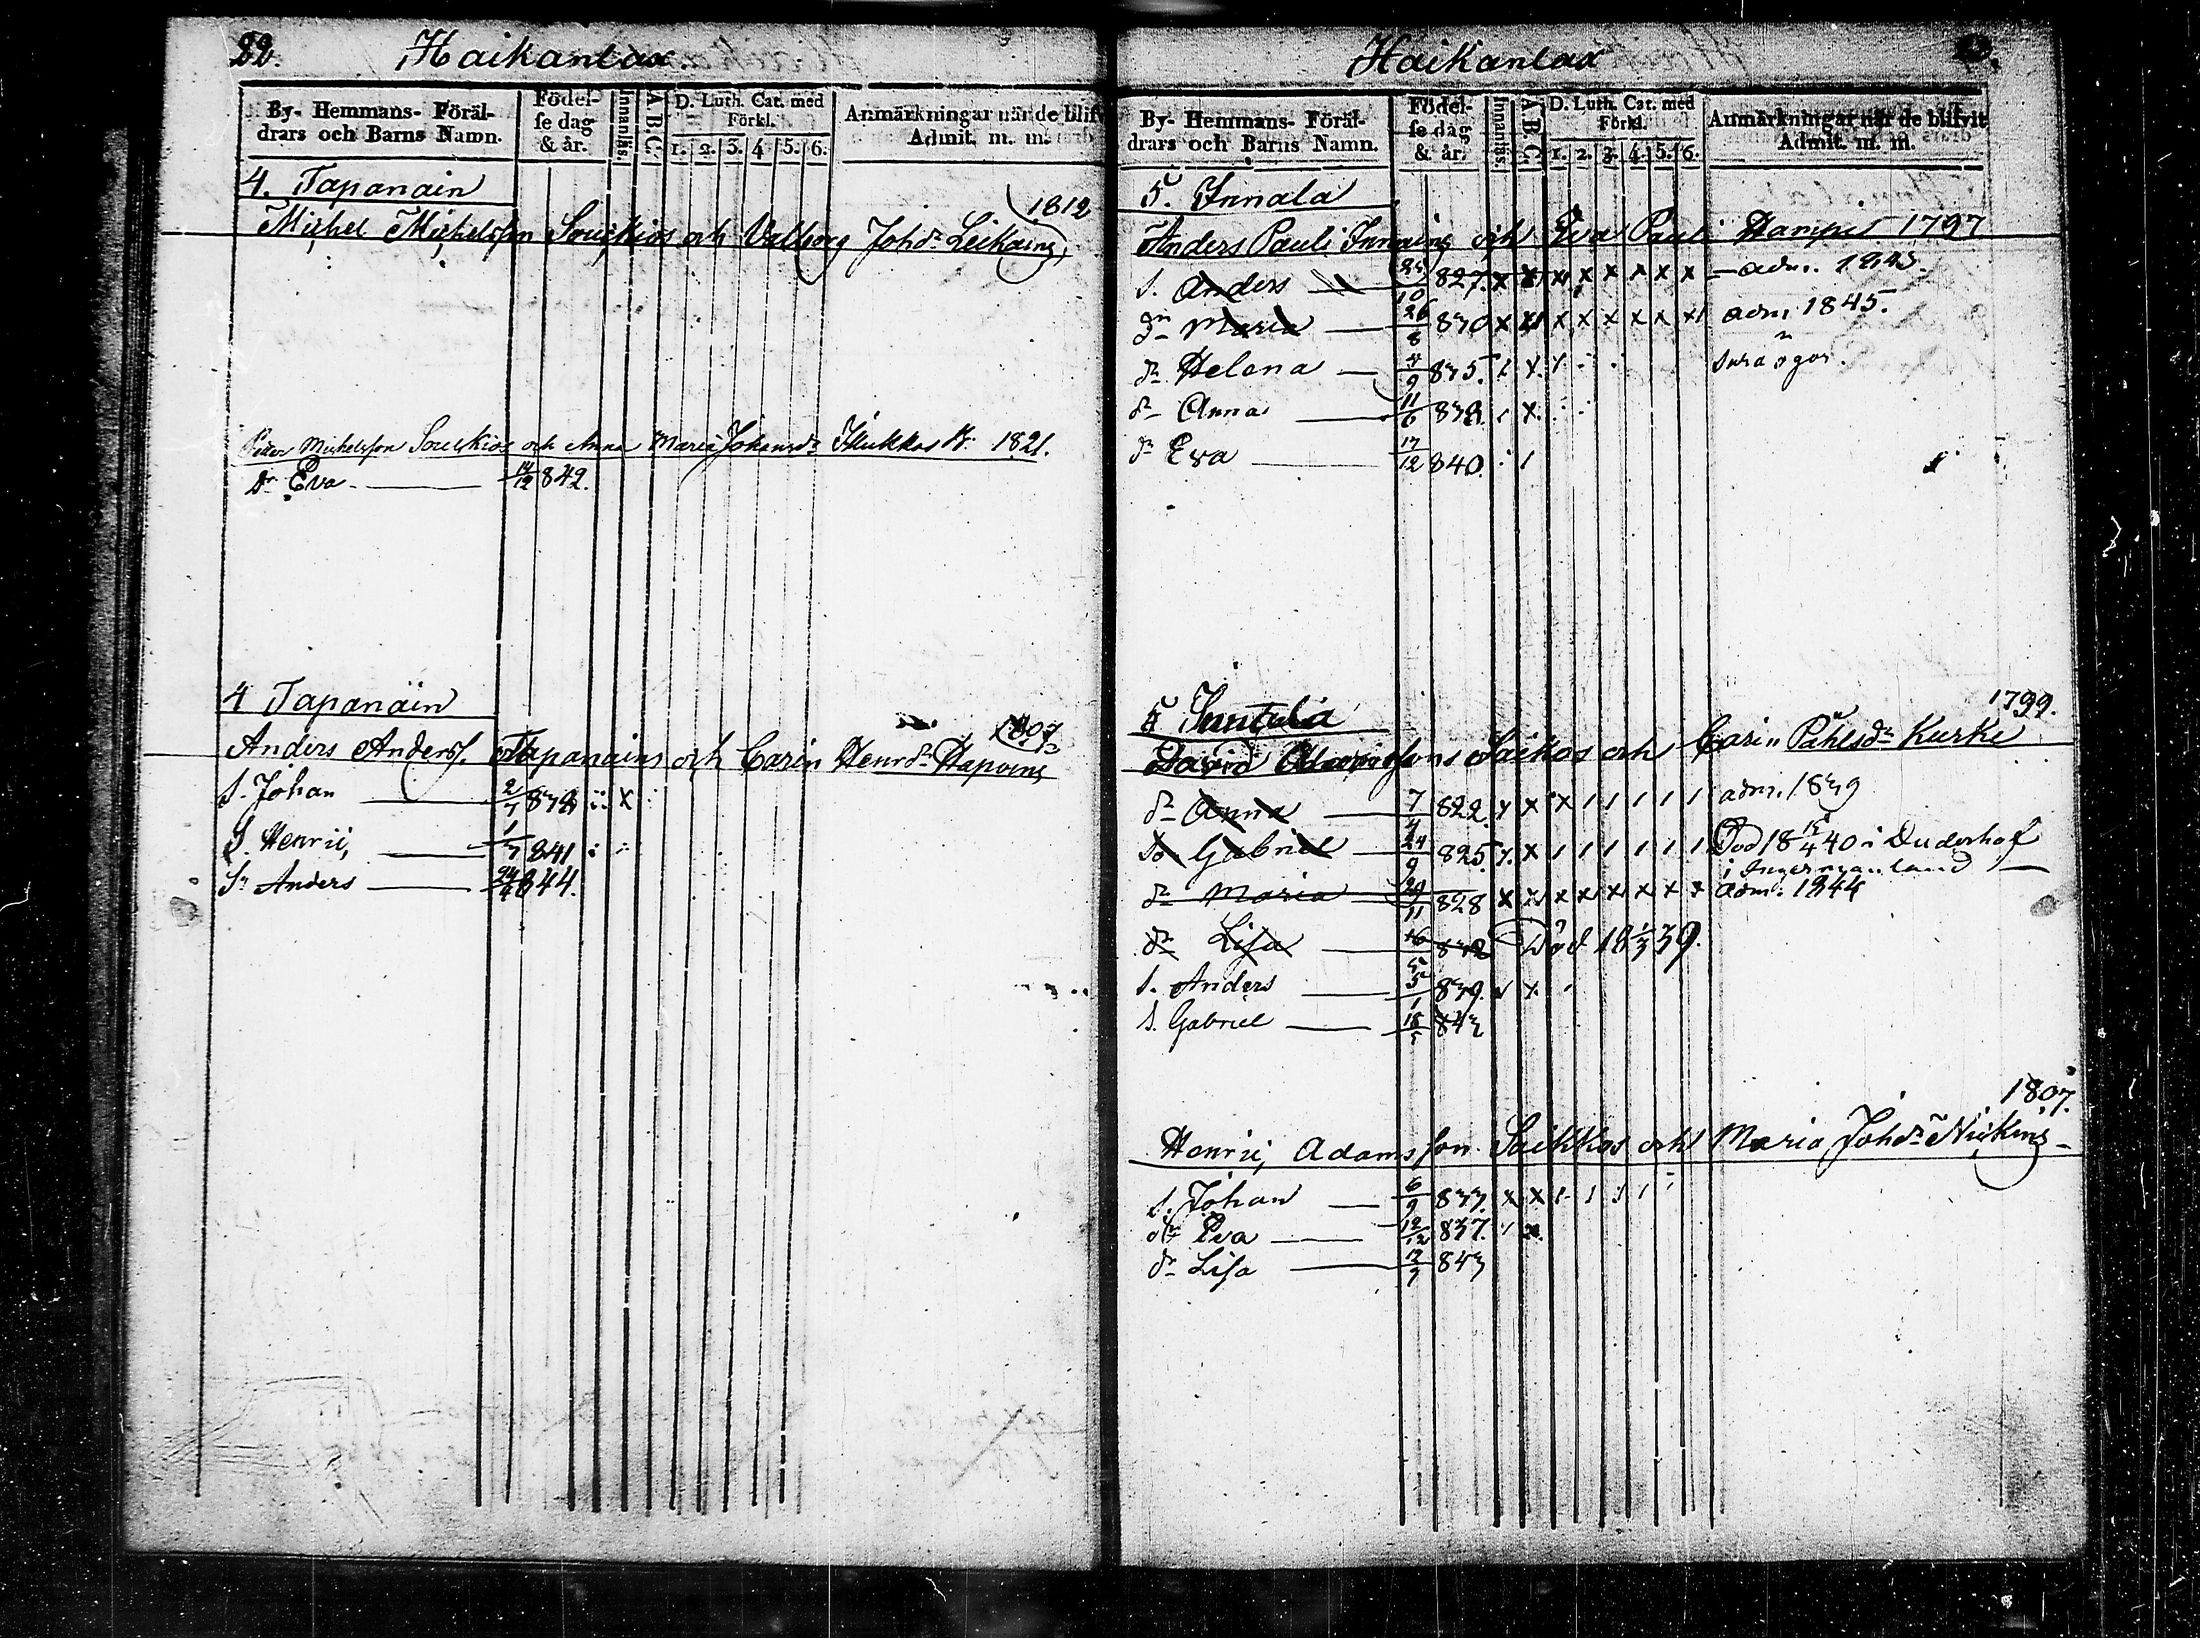 22. Haikanlax.
By- Hemmans- Föräl-
drars och Barns Namn.
Födel-
se dag
& år.
Innanläs.
A.B.C.
D. Luth. Cat. med
Förkl.
1. 2. 3. 4 5. 6.
Anmärkningar när de blifv
Admit. m. m.
4. Tapanain
1812
Michel Michelsson Souckios och Valborg Johdr Leikaing
Peter Michelsson Souckios och Anna Maria Johansdr 1821.
Dr Eva 842.
4 Tapanäin
1807
Anders Anderss. Tapanains och Carin Henrdr Hapoing
S. Johan 2/7 838 x
S. Henric, 1/7 841
Sr Anders 24/4 844.
Haikanlax
By- Hemmans- Föräl-
drars och Barns Namn.
Födel-
se dag
& år.
Innanläs.
A.B.C.
D. Luth. Cat. med
Förkl.
1. 2. 3. 4. 5. 6.
Anmärkningar när de blifvit
Admit. m. m.
5. Innala
Anders Pauli Innaing och Eva Pauli 1797
S. Anders 10 827. x x x x x x x x adm. 1845.
Maria 26/8 830 x x x x x x x x adm. 1845.
dr Helena 4/9 835. ögon.
dr Anna 11/6 838. x
dr Eva 17/12 840.
5 Inntala
1799.
David Saikos och Carin Påhlsdr Kurke
dr Anna 7/4 822. x x x 1 1 1 1 1 adm. 1839
So Gabriel 24/9 825. x 1 1 1 1 1 1 Död 18 /4 40 i Duderhof
i Ingermanland
dr Maria 29/11 828 x x x x x x x x adm. 1844
dr Lisa 16 Död 18 39.
S. Anders 5/1 839. x
S. Gabriel 18/5 843
1807.
Henric, Adamsson Saikkos och Maria Johdr
S. Johan 6/9 833. x x 1 1 1 1
dr Eva 12/12 837.
dr Lisa 843